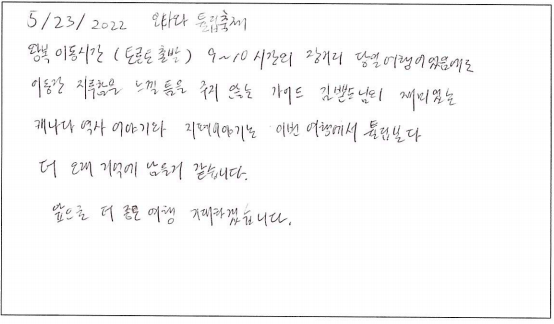 5/23/2022 오타와 튤립축제
왕복 이동시간 (토론토 출발) 9~10시간의 장거리 당일여행이었음에도
이동간 지루함을 느낄 틈을 주지 않는 가이드 님의 재미있는
캐나다 역사 이야기와 지폐이야기는 이번 여행에서 튤립보다
더 오래 기억에 남을거 같습니다.
앞으로 더 좋은 여행 기대하겠습니다.